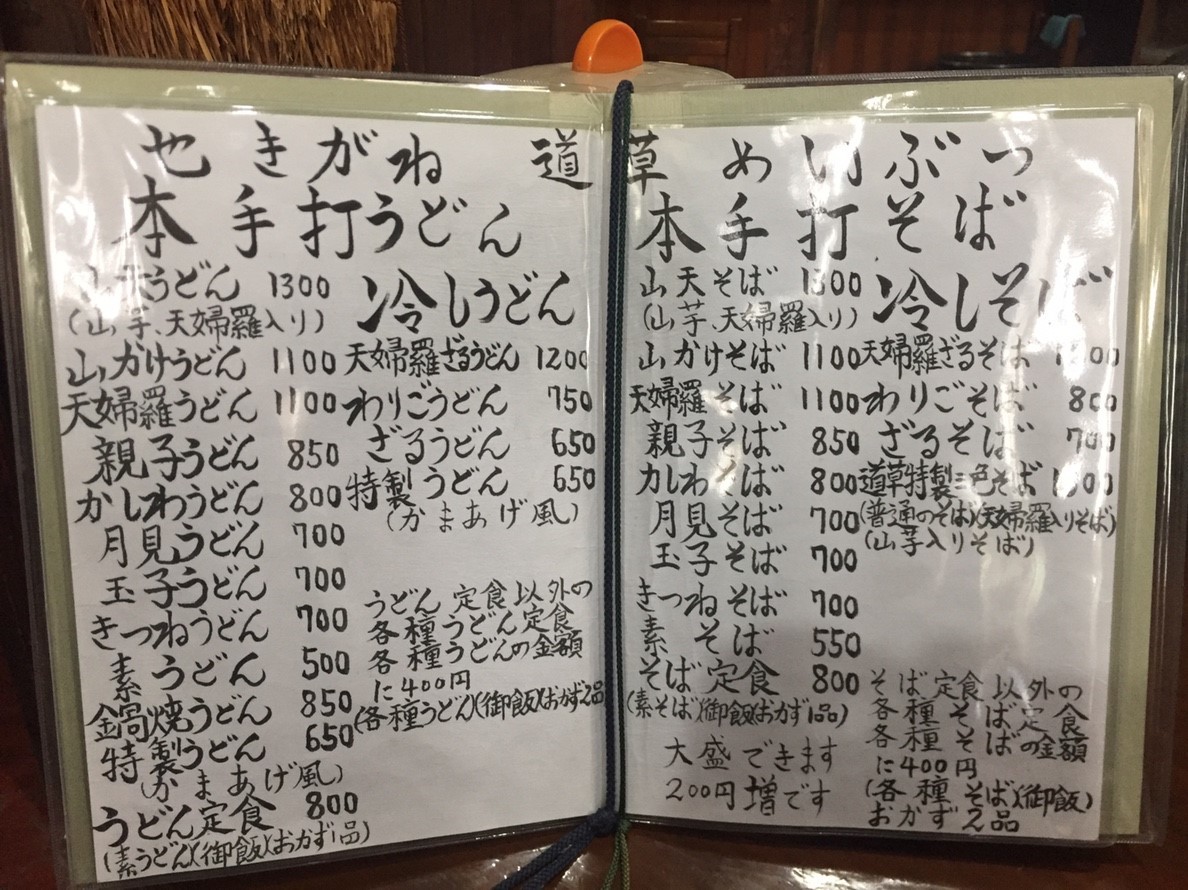 也きがね道草めいぶつ
本手打うどん
山天うどん 1300
(山芋、天婦羅入り)
山かけうどん 1100
天婦羅うどん 1100
親子うどん 850
かしわうどん 800
月見うどん 700
玉子うどん 700
きつねうどん 700
素うどん 500
鍋焼うどん 850
特製うどん 650
(かまあげ風)
うどん定食 800
(素うどん)(御飯)(おかず1品)
冷しうどん
天婦羅ざるうどん 1200
わりごうどん 750
ざるうどん 650
特製うどん 650
(かまあげ風)
うどん定食以外の
各種うどん定食
各種うどんの金額
に400円
(各種うどん)(御飯)(おかず2品
本手打そば
山天そば 1300
(山芋、天婦羅入り)
山かけそば 1100
天婦羅そば 1100
親子そば 850
かしわそば 800
月見そば 700
玉子そば 700
きつねそば 700
素そば 550
そば定食 800
(素そば)(御飯)(おかず1品)
大盛できます
200円増です
冷しそば
天婦羅ざるそば
わりごそば 800
ざるそば 700
道草特製三色そば
(普通のそば)(天婦羅入りそば)
(山芋入りそば)
そば定食以外の
各種そば定食
各種そばの金額
に400円
(各種そば)(御飯)
おかず2品